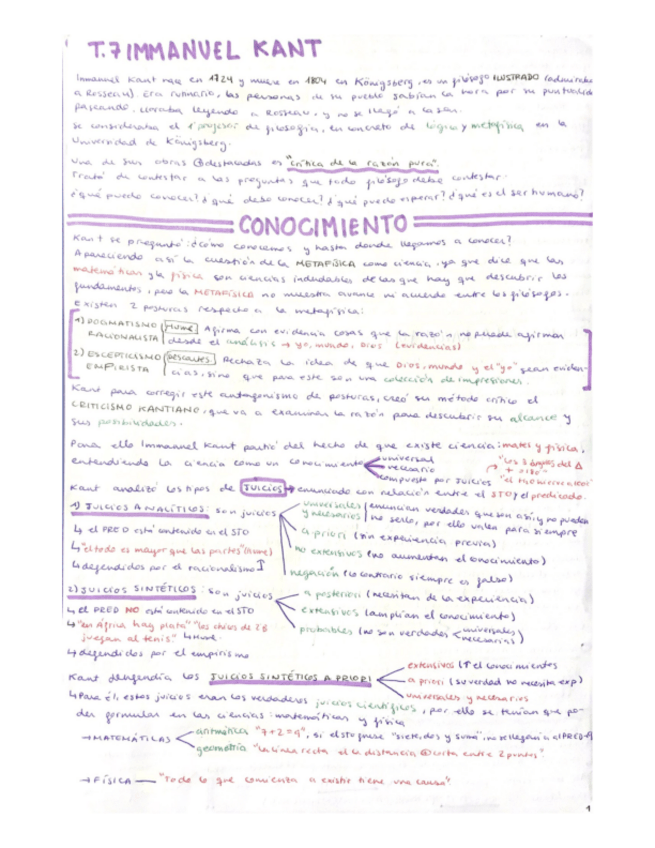 T.7 IMMANUEL KANT
Immanuel Kant nace en 1724 y muere en 1804 en Königsberg, es un filósofo ILUSTRADO (admiraba
a Rosseau). Era rutinario, las personas de su pueblo sabían la hora por su puntualidad
paseando. Lloraba leyendo a Rosseau, y no se llegó a casar.
Se consideraba el 1º profesor de filosofía, en concreto de lógica y metafísica en la
Universidad de Königsberg.
Una de sus obras destacadas es "Crítica de la razón pura".
Trató de contestar a las preguntas que todo filósofo debe contestar:
¿qué puedo conocer? ¿qué debo conocer? ¿qué puedo esperar? ¿qué es el ser humano?
CONOCIMIENTO
Kant se preguntó: ¿cómo conocemos y hasta donde llegamos a conocer?
Apareciendo así la cuestión de la METAFÍSICA como ciencia, ya que dice que las
matemáticas y la física son ciencias indudables de las que hay que descubrir los
fundamentos, pero la METAFÍSICA no muestra avance ni acuerdo entre los filósofos.
Existen 2 posturas respecto a la metafísica:
1) DOGMATISMO RACIONALISTA (Hume) Afirma con evidencia cosas que la razón no puede afirmar
desde el análisis → yo, mundo, Dios (evidencias)
2) ESCEPTICISMO EMPIRISTA (Descartes) Rechaza la idea de que Dios, mundo y el "yo" sean eviden-
cias, sino que para este son una colección de impresiones.
Kant para corregir este antagonismo de posturas, creó su método crítico el
CRITICISMO KANTIANO, que va a examinar la razón para descubrir su alcance y
sus posibilidades.
Para ello Immanuel Kant partió del hecho de que existe ciencia: mates y física,
entendiendo la ciencia como un conocimiento universal
necesario
compuesto por juicios
"los 3 ángulos del Δ
Kant analizó los tipos de JUICIOS → enunciado con relación entre el STO y el predicado.
1) JUICIOS ANALÍTICOS: son juicios
universales y necesarios (enuncian verdades que son así y no pueden
no serlo, por ello valen para siempre
a priori (sin experiencia previa)
no extensivos (no aumentan el conocimiento)
negación (lo contrario siempre es falso)
↳ el PRED está contenido en el STO
↳ "el todo es mayor que las partes" (Hume)
↳ defendidos por el racionalismo
2) JUICIOS SINTÉTICOS: son juicios
a posteriori (necesitan de la experiencia)
extensivos (amplían el conocimiento)
probables (no son verdades universales)
necesarias)
↳ el PRED NO está contenido en el STO
↳ "en África hay plata" "los chicos de 2B
juegan al tenis" ↳ Hume.
↳ defendidos por el empirismo
Kant defendía los JUICIOS SINTÉTICOS A PRIORI
extensivos (↑ el conocimiento
a priori (su verdad no necesita exp)
universales y necesarios
↳ Para él, estos juicios eran los verdaderos juicios científicos, por ello se tenían que po-
der formular en las ciencias: matemáticas y física
→ MATEMÁTICAS
aritmética "7+2=9", si el sto fuese "siete, dos y suma", no se llegaría al PRED=9
geometría "la línea recta es la distancia corta entre 2 puntos".
→ FÍSICA — "Todo lo que comienza a existir tiene una causa".
1